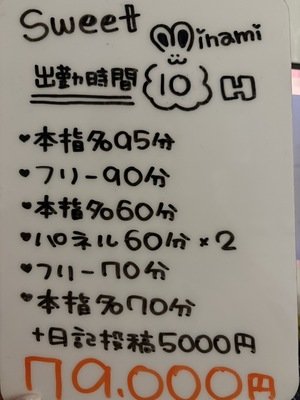 Sweet
Minami
出勤時間 10H
♥本指名95分
♥フリー90分
♥本指名60分
♥パネル60分×2
♥フリー70分
♥本指名70分
+日記投稿5000円
79.000円